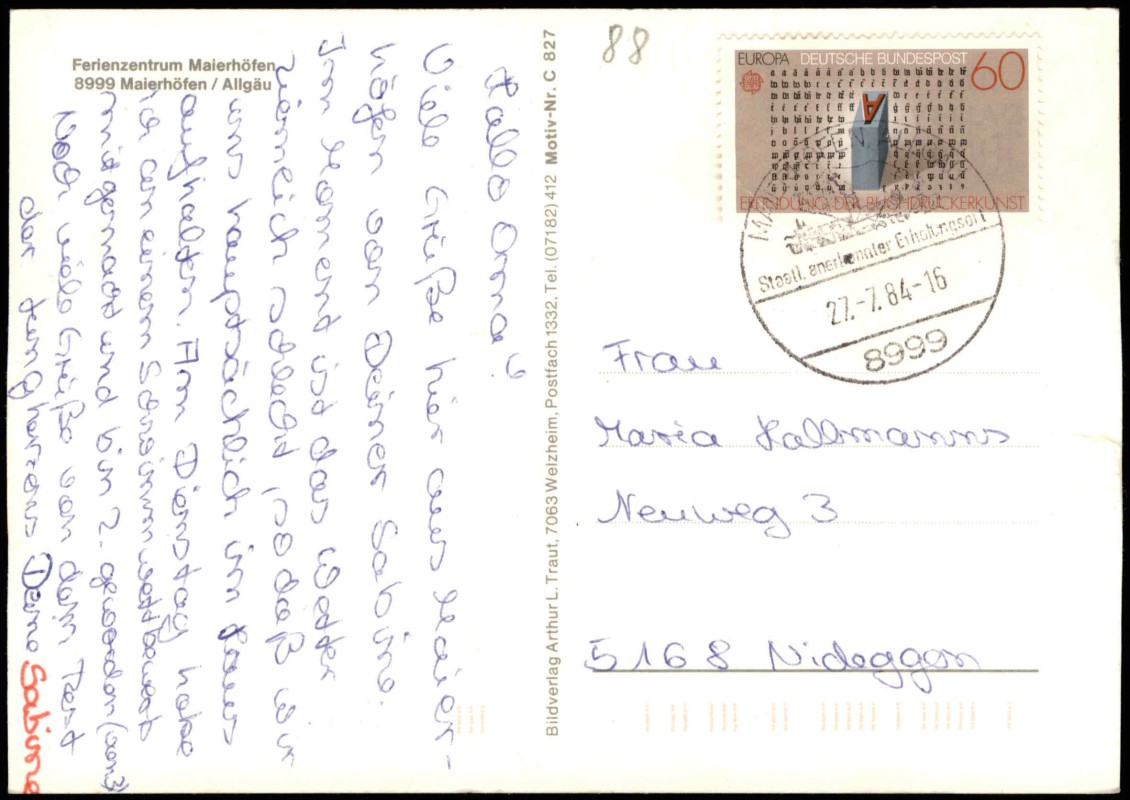 Ferienzentrum Maierhöfen
8999 Maierhöfen / Allgäu
Hallo Oma!
Viele Grüße hier aus Maier-
höfen von Deiner Sabine.
Im Moment ist das Wetter
ziemlich schlecht, sodaß wir
uns hauptsächlich im Haus
aufhalten. Am Dienstag habe
ich an einem Schwimmwettbewerb
mitgemacht und bin 2. geworden (von 3)
Noch viele Grüße von dem Rest
der
Deine Sabine
Bildverlag Arthur L. Traut, 7063 Welzheim, Postfach 1332, Tel. (07182) 412 Motiv-Nr. C 827
88
EUROPA DEUTSCHE BUNDESPOST 60
ERFINDUNG DER BUCHDRUCKERKUNST
Staatl. anerkannter Erholungsort
27.-7.84-16
8999
Frau
Maria Hallmanns
Neuweg 3
5168 Nideggen